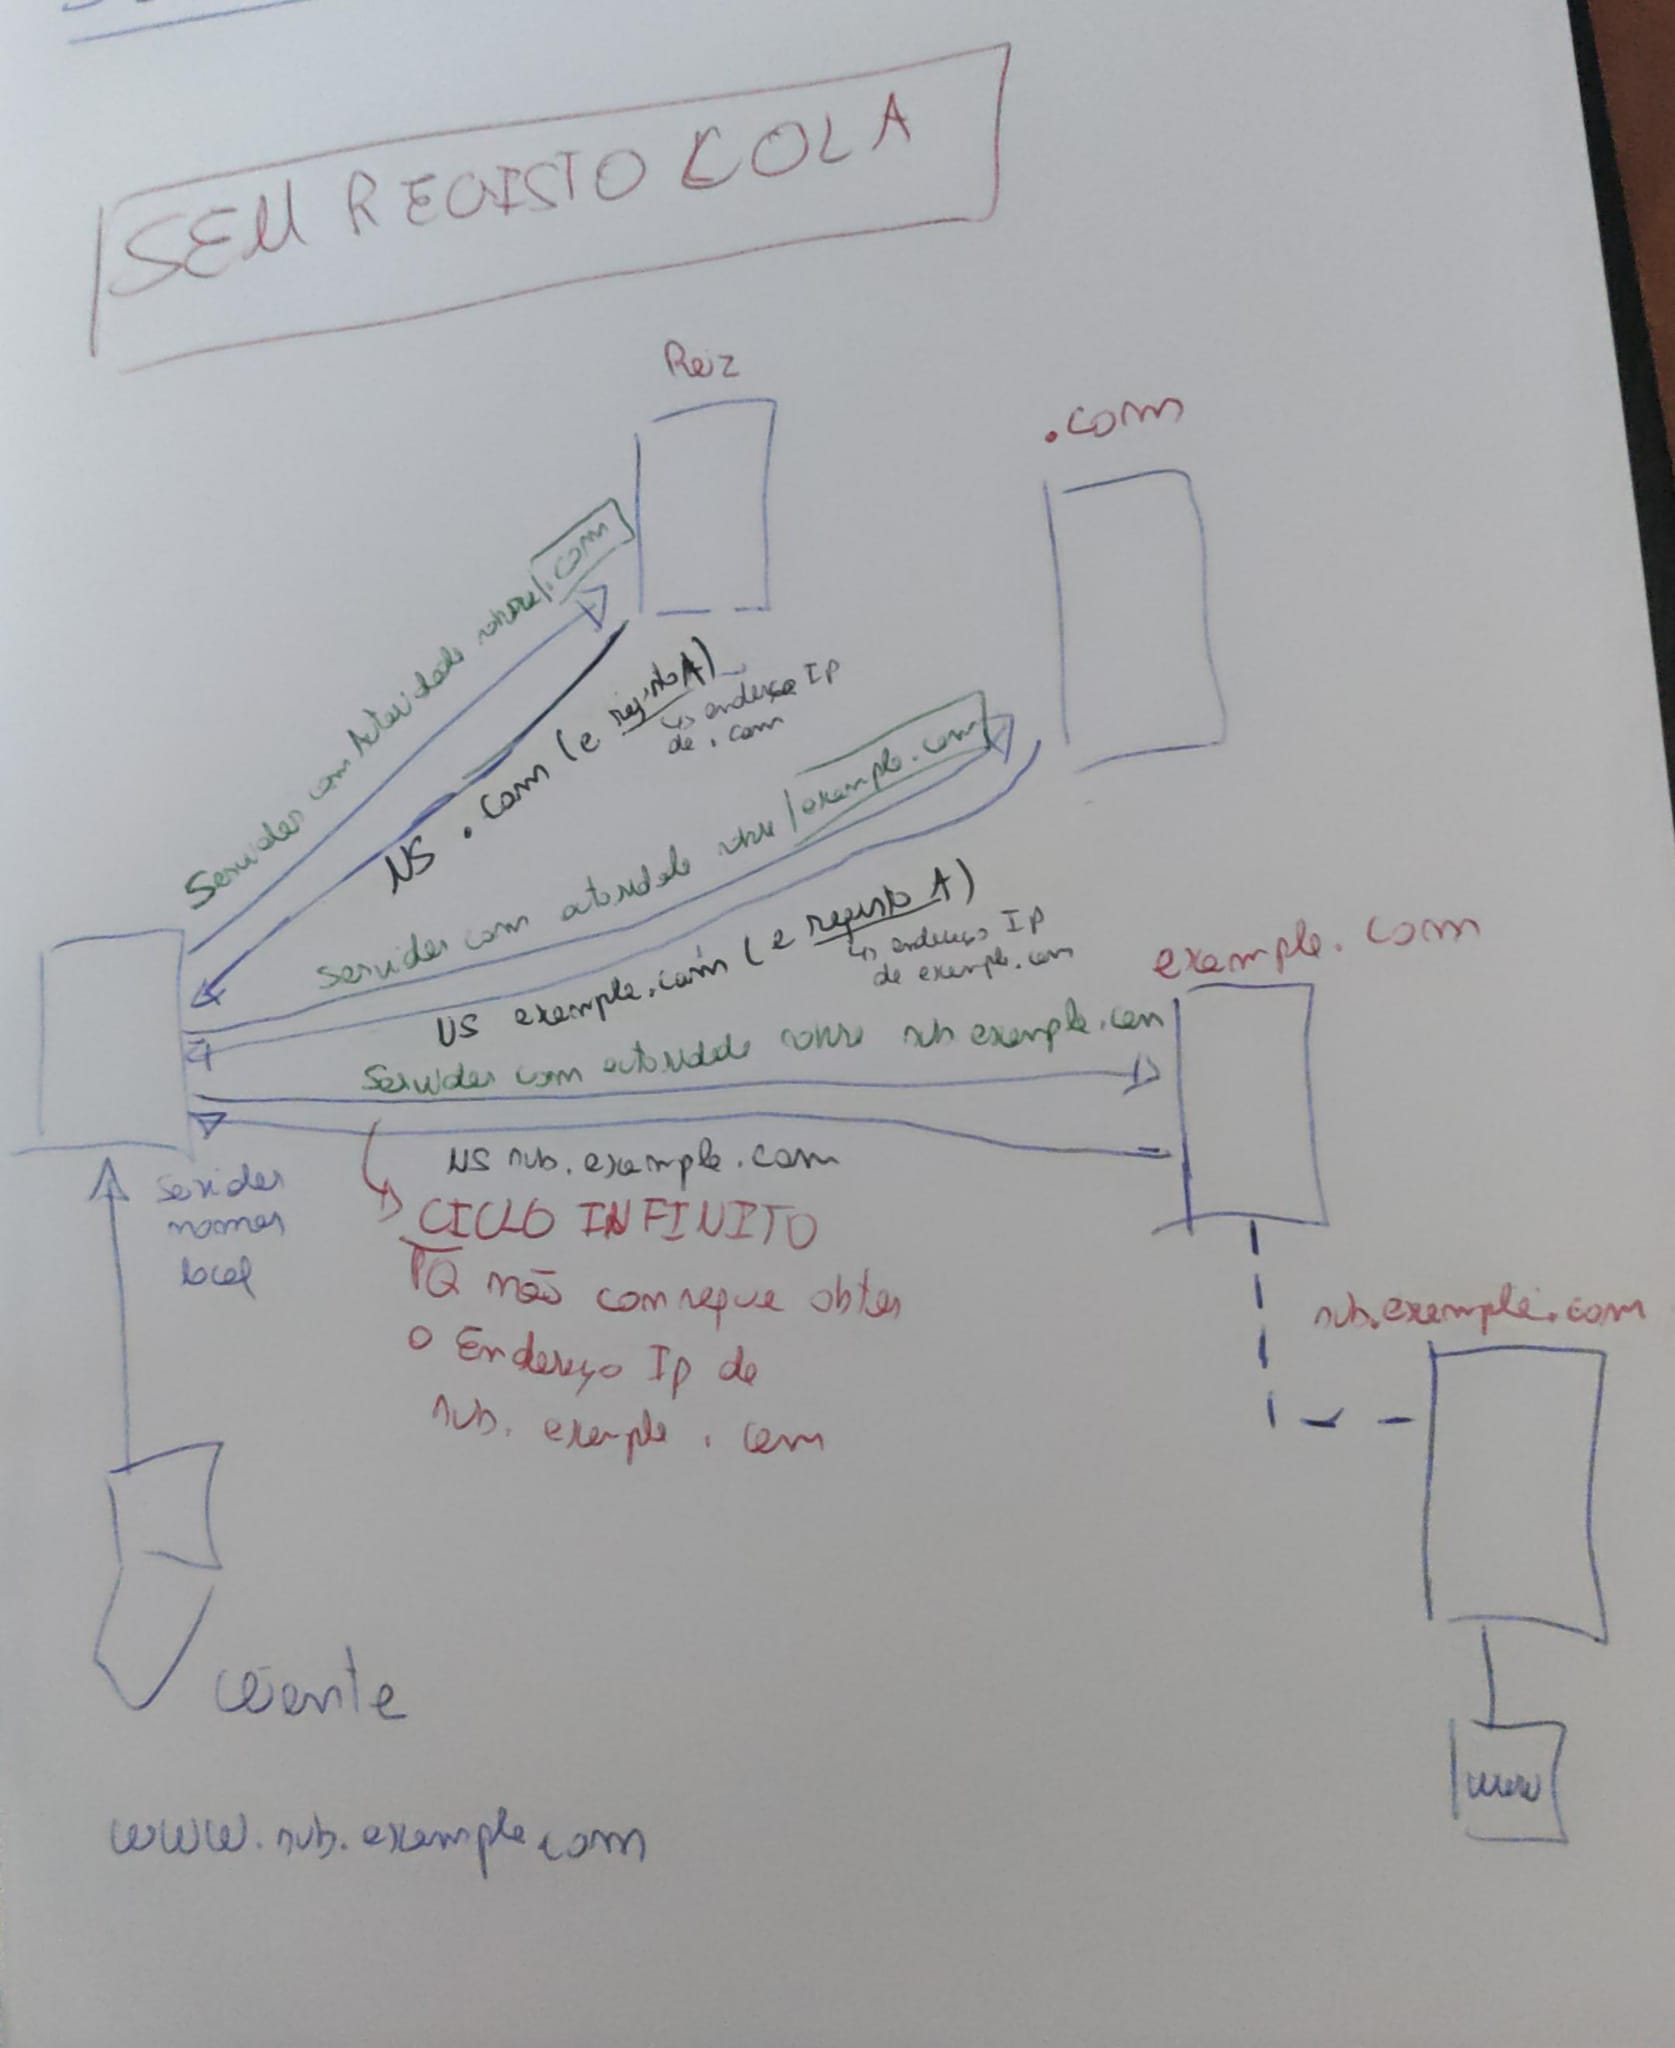 SEM REGISTO COLA
Raiz
.com
Servidor com Autoridade sobre .com
NS .com (e registo A)
↳ endereço IP
de .com
Servidor com autoridade sobre exemple.com
NS exemple.com (e registo A)
↳ endereço IP
de exemple.com
exemple.com
Servidor com autoridade sobre sub exemple.com
NS sub.exemple.com
Servidor
nomes
local
CICLO INFINITO
PQ não consegue obter
o Endereço Ip de
sub.exemple.com
sub.exemple.com
cliente
www
www.sub.exemple.com